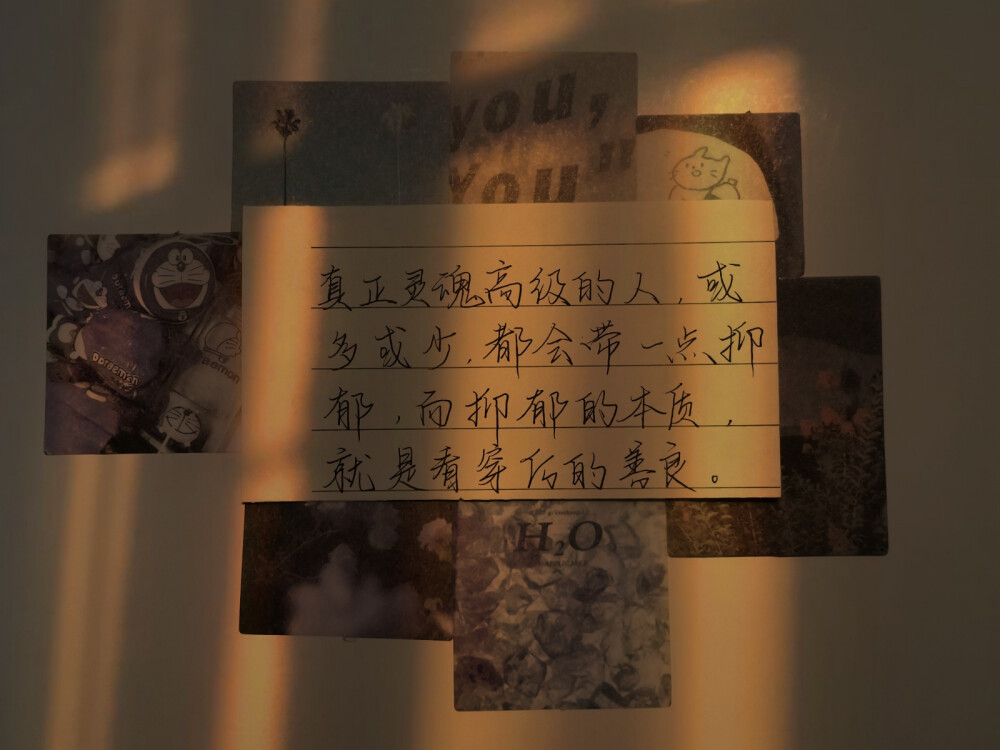 you,
You"
真正灵魂高级的人，或
多或少，都会带一点抑
郁，而抑郁的本质，
就是看穿后的善良。
Doraemon
H₂O